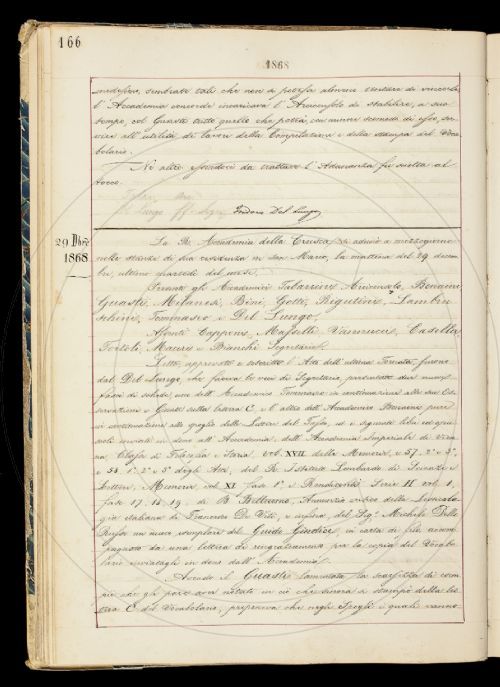 166
1868
medesimo, sembrate tali che non si possa almeno tentare di vincerle
l'Accademia concorde incaricava l'Arciconsolo di stabilire, a suo
tempo, col Guasti tutto quello che potrà, con minore scomodo di esso, ser-
vire all'utilità dei lavori della Compilazione e della stampa del Voca-
bolario.
Nè altro essendoci da trattare l'Adunanza fu sciolta al
tocco.
Isidoro Del Lungo
29 Dbre
1868
La R. Accademia della Crusca si adunò a mezzogiorno
nelle stanze di sua residenza in San Marco, la mattina del 29 decem-
bre, ultimo martedì del mese.
Erano gli Accademici Tabarrini Arciconsolo, Bonaini
Guasti, Milanesi, Bini, Gotti, Rigutini, Lambru-
schini, Tommaseo e Del Lungo.
Assenti Capponi, Maffei, Vannucci, Casella
Tortoli, Mauri e Bianchi Segretario.
Letto, approvato e sottoscritto l'Atto dell'ultima Tornata, furono
dal Del Lungo, che faceva le veci di Segretario, presentati due nuovi
fasci di schede, uno dell'Accademico Tommaseo in continuazione alle sue Os-
servazioni e Giunte sulla lettera C, e l'altro dell'Accademico Bonaini pure
in continuazione allo spoglio delle Lettere del Tasso, ed i seguenti libri ed opu-
scoli inviati in dono all'Accademia dall'Accademia Imperiale di Vien-
na, Classe di Filosofia e Storia, vol. XVII delle Memorie, e 57, 2° e 3°,
e 58, 1°, 2° e 3° degli Atti, del R. Istituto Lombardo di Scienze e
Lettere, Memorie vol. XI fasc. 1° e Rendiconti Serie II vol. 1,
fasc. 17, 18, 19. di B. Bellomo, Annunzio critico della
gia italiana di Francesco De Vit, e infine, del Sigr Michele Dello
Russo un nuovo esemplare del Guido Giudice, in carta di filo accom-
pagnato da una lettera di ringraziamento per la copia del Vocabo-
lario inviatagli in dono dall'Accademia.
Avendo il Guasti lamentata la scarsezza di esem-
pi che gli pare aver notato in ciò che finora è stampato della let-
tera C del Vocabolario, proponeva che negli Spogli i quali vanno